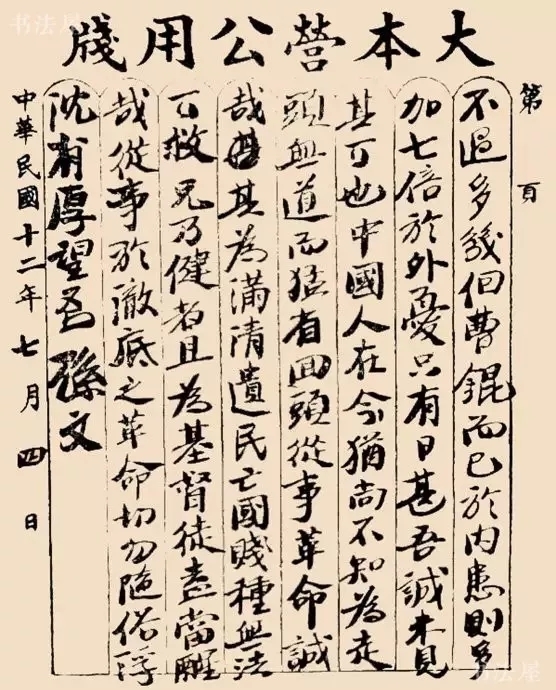 书法屋
大本營公用牋
第 頁
不過多幾個曹錕而已於内患則多
加七倍於外憂只有日甚吾誠未見
其可也中國人在今猶尚不知為走
頭無道而猛省回頭從事革命誠
哉其為滿清遺民亡國賤種無法
可救兄乃健者且為基督徒盍當醒
哉從事於澈底之革命切勿隨俗浮
沈有厚望焉 孫文
中華民國十二年七月四日
书法屋